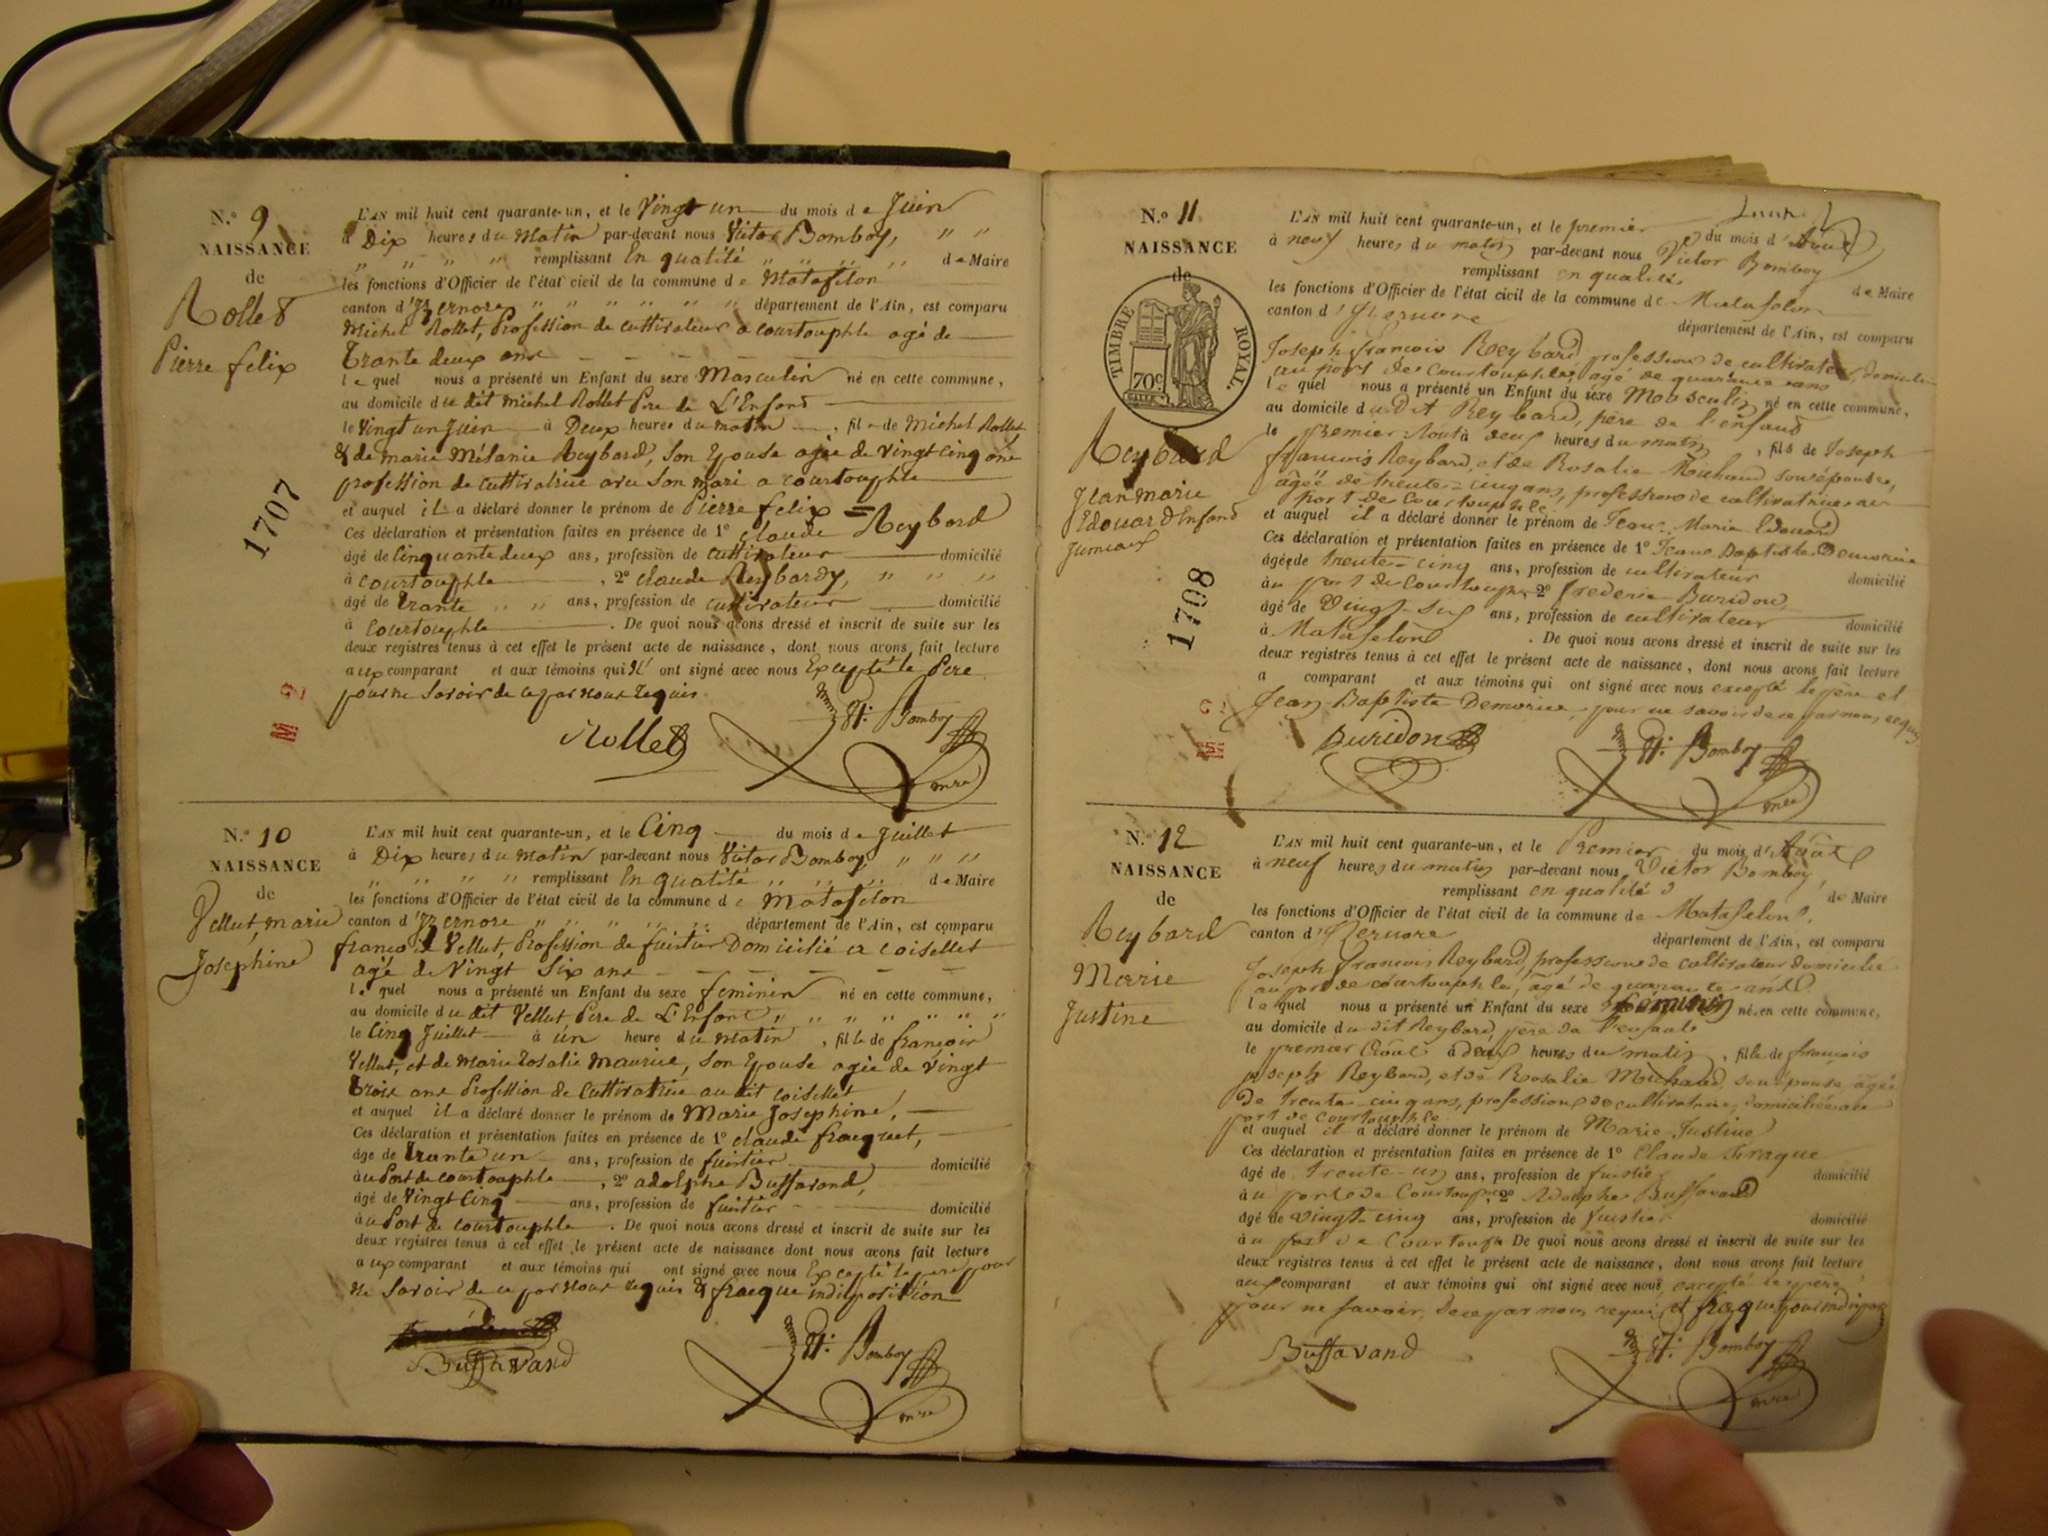 N.º 9
NAISSANCE
de
Rollet
Pierre felix
1707
L'AN mil huit cent quarante-un, et le Vingt un du mois de Juin
à Dix heures du Matin par-devant nous Victor Bomboy, " "
" " " " remplissant En qualité " " " " de Maire
les fonctions d'Officier de l'état civil de la commune de Matafelon
canton d'Izernore " " " " " " département de l'Ain, est comparu
Michel Rollet, Profession de cultivateur a courtouphle agé de
trante deux ans
lequel nous a présenté un Enfant du sexe Masculin né en cette commune,
au domicile du dit Michel Rollet Pere de L'Enfant
le vingt un Juin à Deux heures du matin, fils de Michel Rollet
& de marie Mélanie Reybard, Son Epouse agée de vingt cinq ans
profession de cultivatrice avec Son mari a courtouphle
et auquel il a déclaré donner le prénom de Pierre felix =
Ces déclaration et présentation faites en présence de 1º claude Reybard
âgé de Cinquante deux ans, profession de cultivateur domicilié
à courtouphle, 2º claude Reybardy, " " "
âgé de trante " " ans, profession de cultivateur domicilié
à courtouphle. De quoi nous avons dressé et inscrit de suite sur les
deux registres tenus à cet effet le présent acte de naissance, dont nous avons fait lecture
aux comparant et aux témoins qui ont signé avec nous Excepté le Pere
pour ne Savoir de ce par nous requis
Rollet
Vr. Bomboy
mre
N.º 10
NAISSANCE
de
Vellut, marie
Josephine
L'AN mil huit cent quarante-un, et le Cinq du mois de Juillet
à Dix heures du Matin par-devant nous Victor Bomboy, " " "
" " " " remplissant En qualité " " " " de Maire
les fonctions d'Officier de l'état civil de la commune de Matafelon
canton d'Izernore " " " " " " département de l'Ain, est comparu
françois Vellut, Profession de fustier Domicilié a coisellet
agé de Vingt Six ans
lequel nous a présenté un Enfant du sexe feminin né en cette commune,
au domicile du dit Vellut Pere de L'Enfant " " " " " "
le Cinq Juillet à un heure du matin, fille de françois
Vellut, et de Marie Rosalie Maurice, Son Epouse agée de vingt
trois ans Profession de Cultivatrice au dit coisellet
et auquel il a déclaré donner le prénom de Marie Josephine,
Ces déclaration et présentation faites en présence de 1º claude fracquet,
âgé de trante un ans, profession de fustier domicilié
à au Port de courtouphle, 2º adolphe Buffavand,
âgé de Vingt Cinq ans, profession de fustier domicilié
à au Port de courtouphle. De quoi nous avons dressé et inscrit de suite sur les
deux registres tenus à cet effet le présent acte de naissance dont nous avons fait lecture
aux comparant et aux témoins qui ont signé avec nous Excepté le pere pour
ne Savoir de ce par nous requis & fracque indisposition
Buffavand
Vr. Bomboy
mre
N.º 11
NAISSANCE
de
TIMBRE ROYAL.
70 c
Reybard
Jean marie
Edouard Enfand
Jumeaux
1708
L'AN mil huit cent quarante-un, et le premier du mois d'Août
à neuf heures du matin par-devant nous Victor Bomboy
remplissant en qualité de Maire
les fonctions d'Officier de l'état civil de la commune de Matafelon
canton d'Izernore département de l'Ain, est comparu
Joseph françois Reybard profession de cultivateur, domicilié
au port de Courtouphle, agé de quarante ans
lequel nous a présenté un Enfant du sexe Masculin né en cette commune,
au domicile du Dit Reybard, père de l'enfand
le premier Août à deux heures du matin, fils de Joseph
françois Reybard, et de Rosalie Michaud son épouse,
âgée de trente-cinq ans, profession de cultivatrice au
port de Courtouphle
et auquel il a déclaré donner le prénom de Jean-Marie Edouard
Ces déclaration et présentation faites en présence de 1º Jean Baptiste Demorice
âgé de trente-cinq ans, profession de cultivateur domicilié
à au port de Courtouphle 2º frederic Buridon,
âgé de Vingt-six ans, profession de cultivateur domicilié
à Matafelon. De quoi nous avons dressé et inscrit de suite sur les
deux registres tenus à cet effet le présent acte de naissance, dont nous avons fait lecture
a comparant et aux témoins qui ont signé avec nous excepté le père et
Jean Baptiste Demorice, pour ne savoir de ce par nous requis
Buridon
Vr. Bomboy
mre
N.º 12
NAISSANCE
de
Reybard
Marie
Justine
L'AN mil huit cent quarante-un, et le Premier du mois d'Août
à neuf heures du matin par-devant nous Victor Bomboy,
remplissant en qualité de Maire
les fonctions d'Officier de l'état civil de la commune de Matafelon,
canton d'Izernore département de l'Ain, est comparu
Joseph françois Reybard, profession de cultivateur domicilié
au port de courtouphle, agé de quarante ans
lequel nous a présenté un Enfant du sexe feminin né en cette commune,
au domicile du dit Reybard, père de l'enfant
le premier Août à deux heures du matin, fille de françois
joseph Reybard, et de Rosalie Michaud, son épouse, âgée
de trente-cinq ans, profession de cultivatrice, domiciliée au
port de courtouphle
et auquel il a déclaré donner le prénom de Marie Justine
Ces déclaration et présentation faites en présence de 1º Claude fraque
âgé de trente-un ans, profession de fustier domicilié
à au port de Courtouphle, 2º Adolphe Buffavand
âgé de vingt-cinq ans, profession de fustier domicilié
à au port de Courtouphle De quoi nous avons dressé et inscrit de suite sur les
deux registres tenus à cet effet le présent acte de naissance, dont nous avons fait lecture
aux comparant et aux témoins qui ont signé avec nous excepté le père
pour ne savoir, de ce par nous requis et fraque pour
Buffavand
Vr. Bomboy
mre